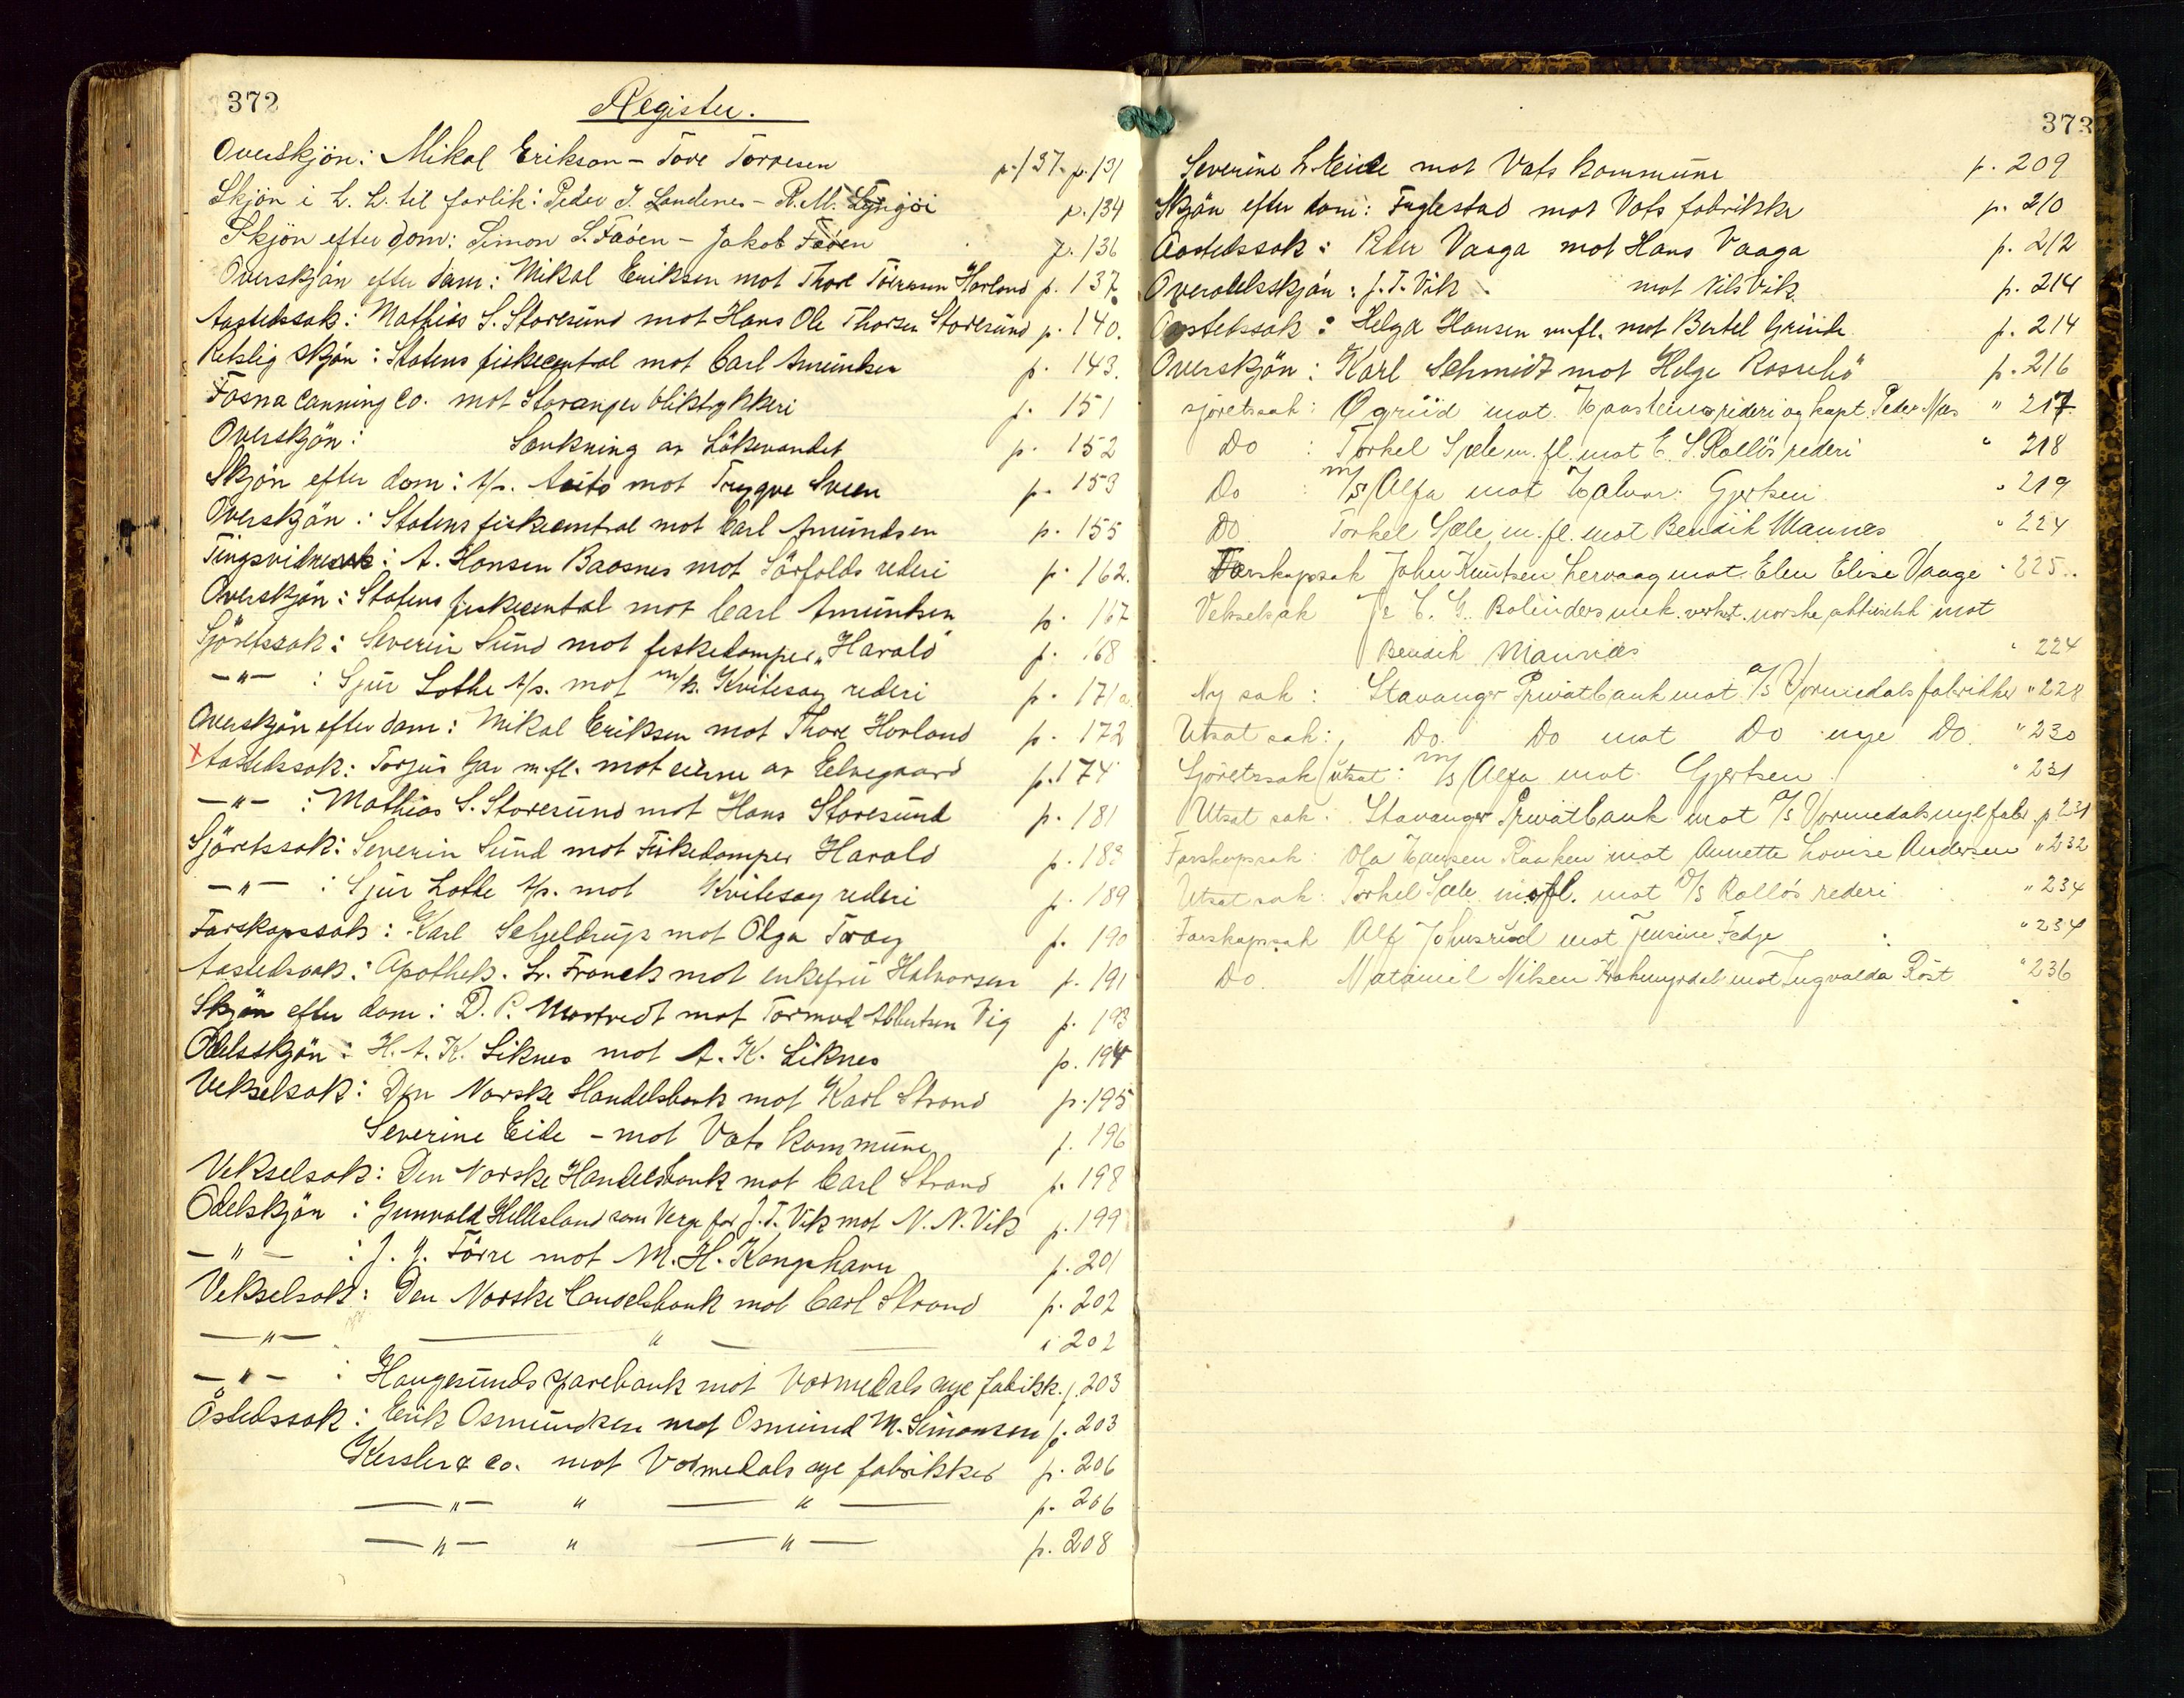 372
Register.
Overskjön: Mikal Erikson - Tore Torresen p. 137. p. 131
Skjön i L. L. til forlik: Peder J. Sandenes - R. M. p. 134
Skjön efter dom: Simon S. Faöen - Jakob Faöen p. 136
Overskjön efter dom: Mikal Eriksen mot Thore Toresen Havland p. 137.
Aastedssak: Mathias S. Storesund mot Hans Ole Thorsen Storesund p. 140.
Retslig skjön: Statens fiskecentral mot Carl Amundsen p. 143.
Fosna Canning Co. mot Stavanger bliktrykkeri p. 151
Overskjön: Sænkning av Lökevandet p. 152
Skjön efter dom: A/s. mot Trygve Sveen p. 153
Overskjön: Statens fiskecentral mot Carl Amundsen p. 155
Tingsvidnesak: A. Hansen Baasnes mot Sörfolds rederi p. 162.
Overskjön: Statens fiskecentral mot Carl Amundsen p. 167
Sjöretssak: Severin Sund mot fiskedamper „Harald" p. 168
-"- : Sjur Lothe A/s. mot m/k. Kvitesøy rederi p. 171a
Overskjön efter dom: Mikal Eriksen mot Thore Havland p. 172
x Aastedssak: Torjus Gar m.fl. mot eierne av Eelvegaard p. 174
-"- : Mathias S. Storesund mot Hans Storesund p. 181
Sjöretssak: Severin Sund mot Fiskedamper Harald p. 183
-"- : Sjur Lothe A/s. mot Kvitesøy rederi p. 189
Farskapssak: Karl Seljeldrup mot Olga p. 190
Aastedssak: Apothek. Lr. Franck mot enkefru Halvorsen p. 191
Skjön efter dom: D. P. Mortvedt mot Tormod Abbutsen Vig p. 193
Odelsskjön: H. A. K. Liknes mot A. K. Liknes p. 194
Vekselsak: Den Norske Handelsbank mot Karl Strand p. 195
Severine Eide - mot Vats kommune p. 196
Vekselsak: Den Norske Handelsbank mot Carl Strand p. 198
Odelskjön : Gunvald Hellesland som Verge for J. T. Vik mot N. N. Vik p. 199
-"- : J. J. Förre mot M. H. Kongshavn p. 201
Vekselsak: Den Norske Handelsbank mot Carl Strand p. 202
-"- " - i 202
-"- : Haugesunds Sparebank mot Vormedals nye fabrikk. p. 203
Åstedssak: Erik Osmundsen mot Osmund M. Simonsen p. 203
Kessler & Co. mot Vormedals nye fabrikker p. 206
-"- " -"- p. 206
-"- " -"- p. 208
373
Severine L. Eide mot Vats kommune p. 209
Skjön efter dom: Fuglestad mot Vats fabrikker p. 210
Aastedssak: Peder Vaaga mot Hans Vaaga p. 212
Overodelsskjön: J. T. Vik mot Nils Vik. p. 214
Aastedssak: Helga Hansen m.fl. mot Bertel Grinde p. 214
Overskjön: Karl Schmidt mot Helge Rossebö p. 216
sjöretssak: Øgriid mot Haasteins rederi og kapt. Peder Næs " 217
Do : Torkel Sæle m. fl. mot E. S. Rollös rederi " 218
Do : m/s Alfa mot Halvor Gjertsen " 219
Do Torkel Sæle m. fl. mot Bendik Mannes " 224
Farskapssak John Knutsen Lervaag mot Elen Elise Vaage " 225..
Vekselsak J. & C. G. Bolinders mek. verkst. norske aktieselsk mot
Bendik Mannes " 224
Ny sak: Stavanger Privatbank mot A/S Vormedals fabrikker " 228
Utsat sak: Do. Do mot Do nye Do. " 230
Sjöretssak (utsat: m/s Alfa mot Gjertsen " 231
Utsat sak: Stavanger Privatbank mot A/S Vormedals nye fabr. p 231
Farskapssak: Ola Hansen Raaken mot Annette Lovise Andersen " 232
Utsat sak: Torkel Sæle m.fl. mot A/S Rollös rederi " 234
Farskapssak Alf Johnsrud mot Jensine Fedje " 234
Do. Mataniel Nilsen mot Ingvalda Röst " 236